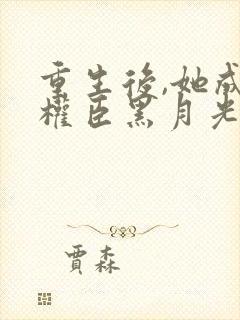 重生後,她成
權臣黑月光
賈森